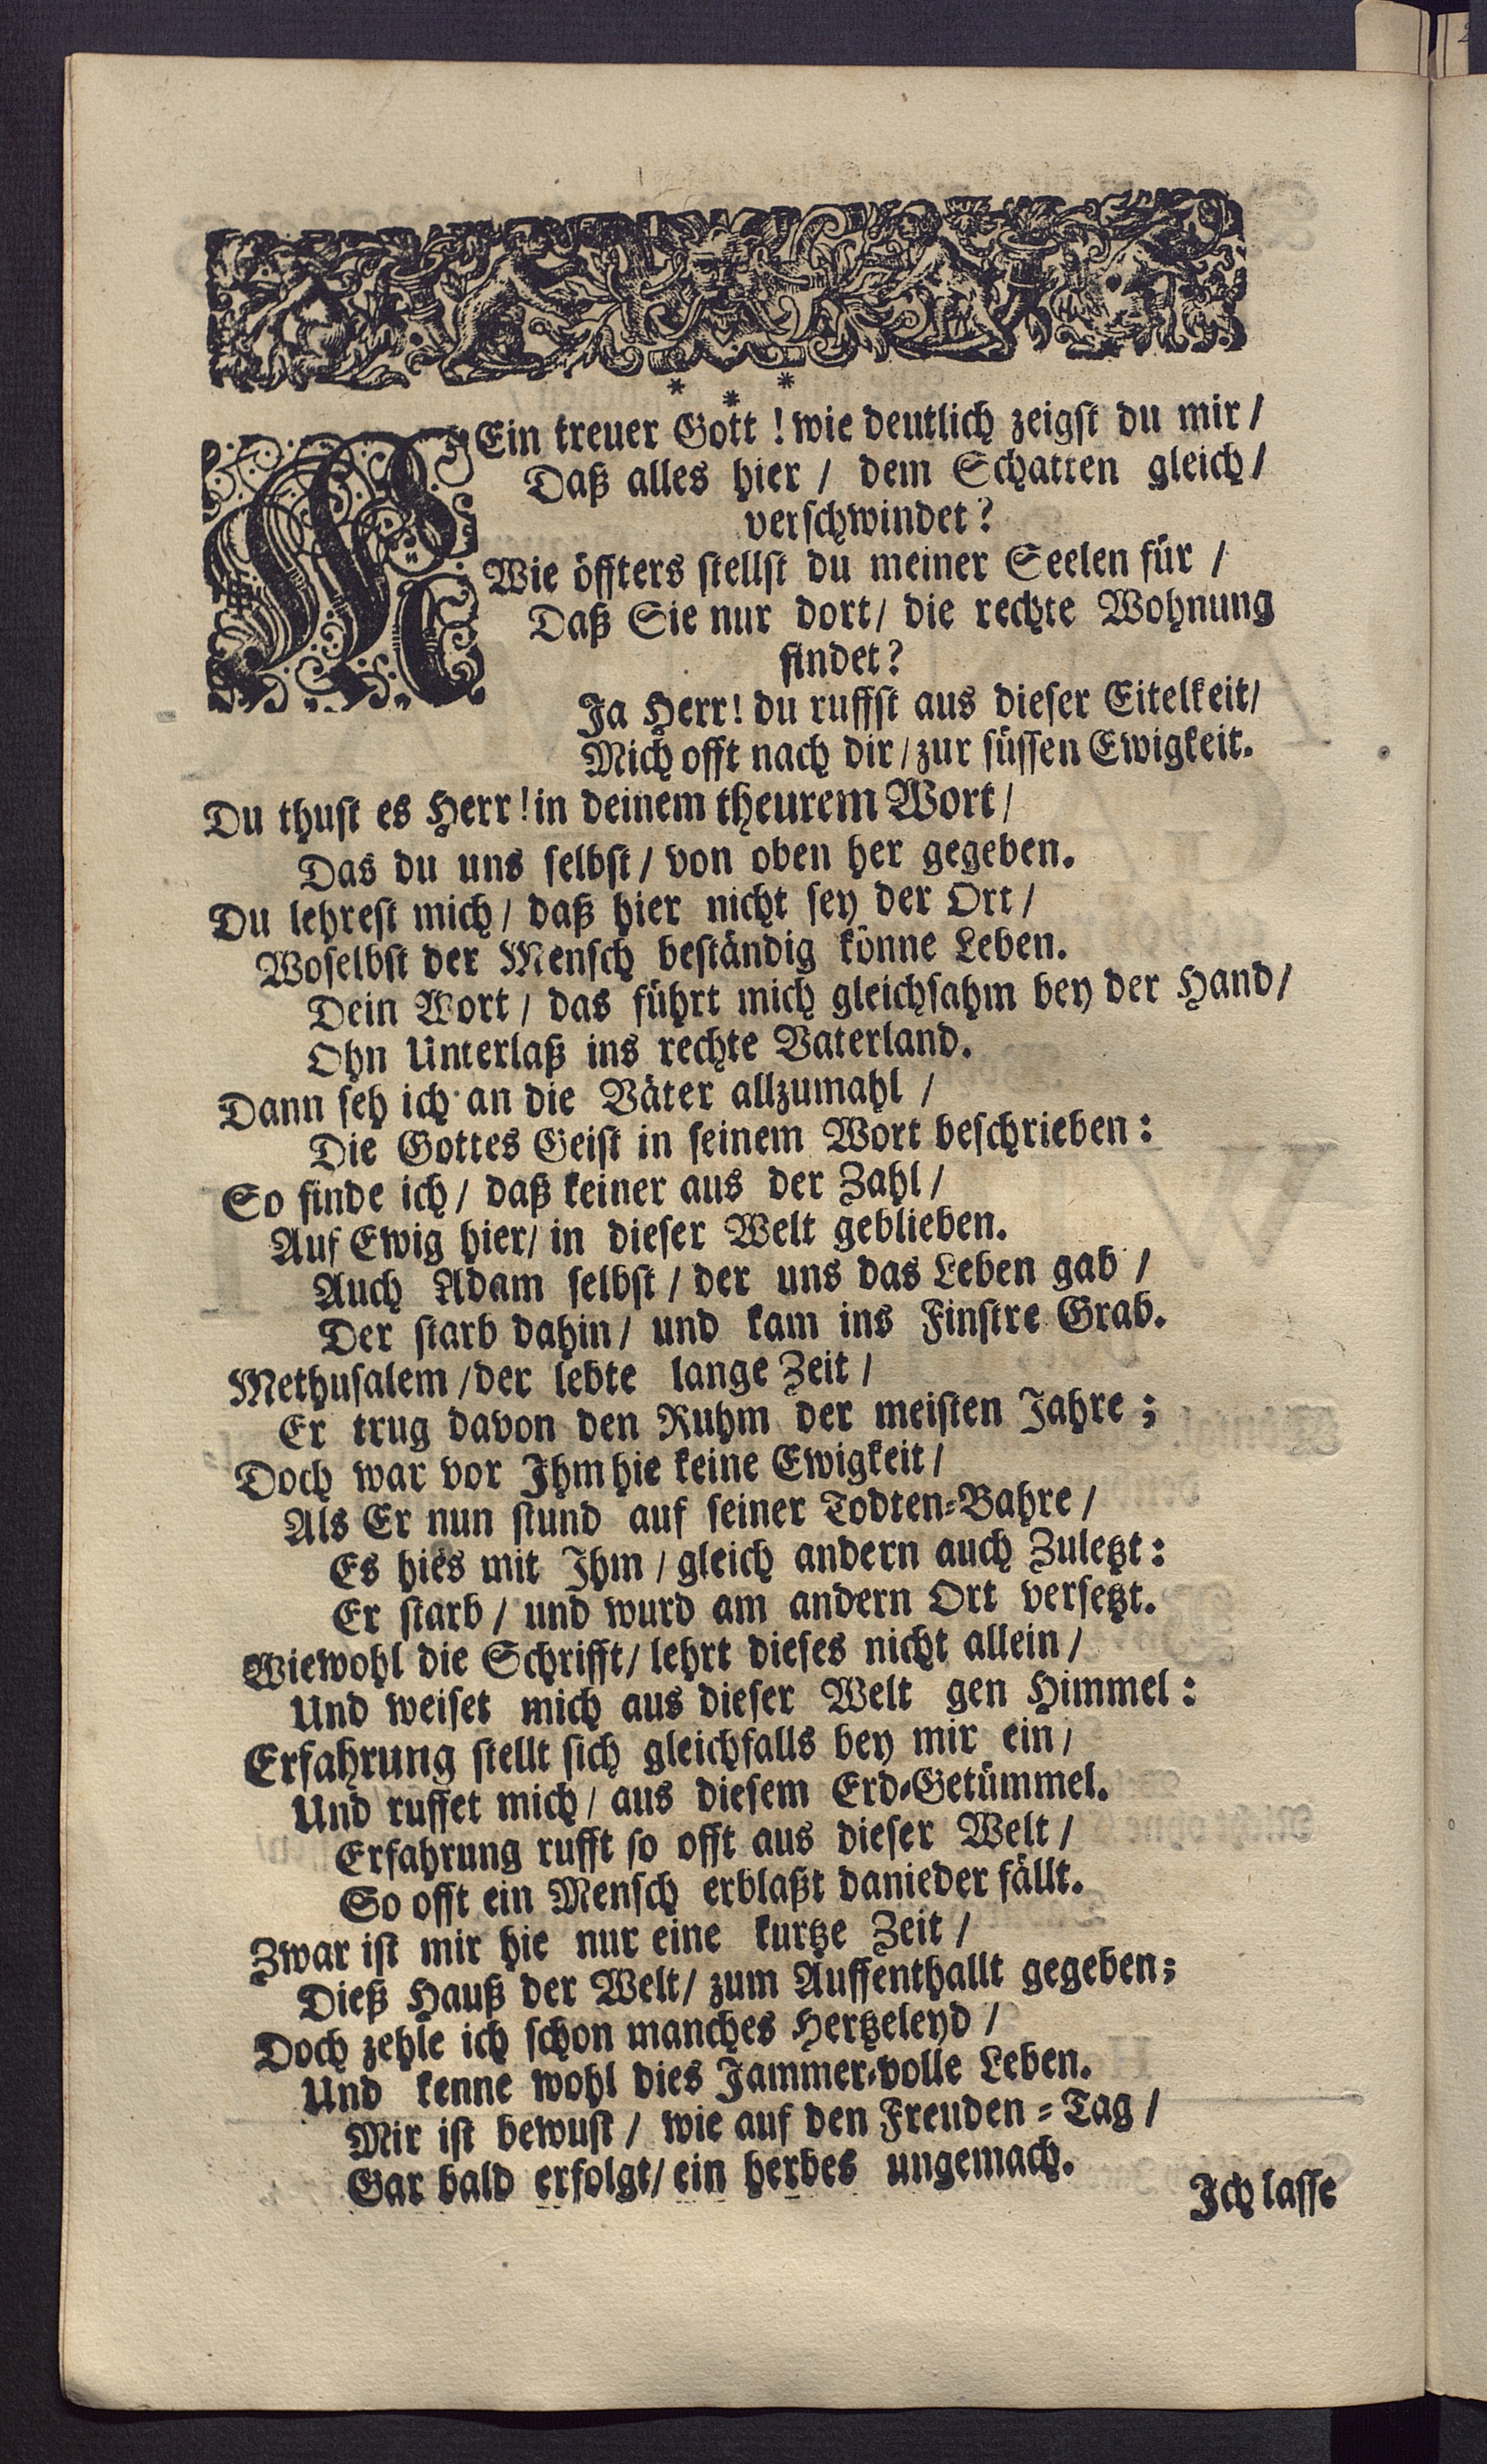 * * *
MEin treuer Gott! wie deutlich zeigst du mir/
Daß alles hier / dem Schatten gleich/
verschwindet?
Wie öffters stellst du meiner Seelen für /
Daß Sie nur dort/ die rechte Wohnung
findet?
Ja Herr! du ruffst aus dieser Eitelkeit/
Mich offt nach dir/zur süssen Ewigkeit.
Du thust es Herr! in deinem theurem Wort/
Das du uns selbst/ von oben her gegeben.
Du lehrest mich/ daß hier nicht sey der Ort/
Woselbst der Mensch beständig könne Leben.
Dein Wort / das führt mich gleichsahm bey der Hand/
Ohn Unterlaß ins rechte Vaterland.
Dann seh ich an die Väter allzumahl /
Die Gottes Geist in seinem Wort beschrieben:
So finde ich/ daß keiner aus der Zahl/
Auf Ewig hier/ in dieser Welt geblieben.
Auch Adam selbst/ der uns das Leben gab /
Der starb dahin/ und kam ins Finstre Grab.
Methusalem /der lebte lange Zeit/
Er trug davon den Ruhm der meisten Jahre;
Doch war vor Ihm hie keine Ewigkeit/
Als Er nun stund auf seiner Todten-Bahre/
Es hies mit Ihm / gleich andern auch Zuletzt:
Er starb / und wurd am andern Ort versetzt.
Wiewohl die Schrifft/ lehrt dieses nicht allein/
Und weiset mich aus dieser Welt gen Himmel:
Erfahrung stellt sich gleichfalls bey mir ein/
Und ruffet mich/ aus diesem Erd-Getümmel.
Erfahrung rufft so offt aus dieser Welt/
So offt ein Mensch erblaßt danieder fällt.
Zwar ist mir hie nur eine kurtze Zeit /
Dieß Hauß der Welt/ zum Auffenthallt gegeben;
Doch zehle ich schon manches Hertzeleyd /
Und kenne wohl dies Jammer-volle Leben.
Mir ist bewust / wie auf den Freuden-Tag /
Gar bald erfolgt/ ein herbes ungemach.
Ich lasse